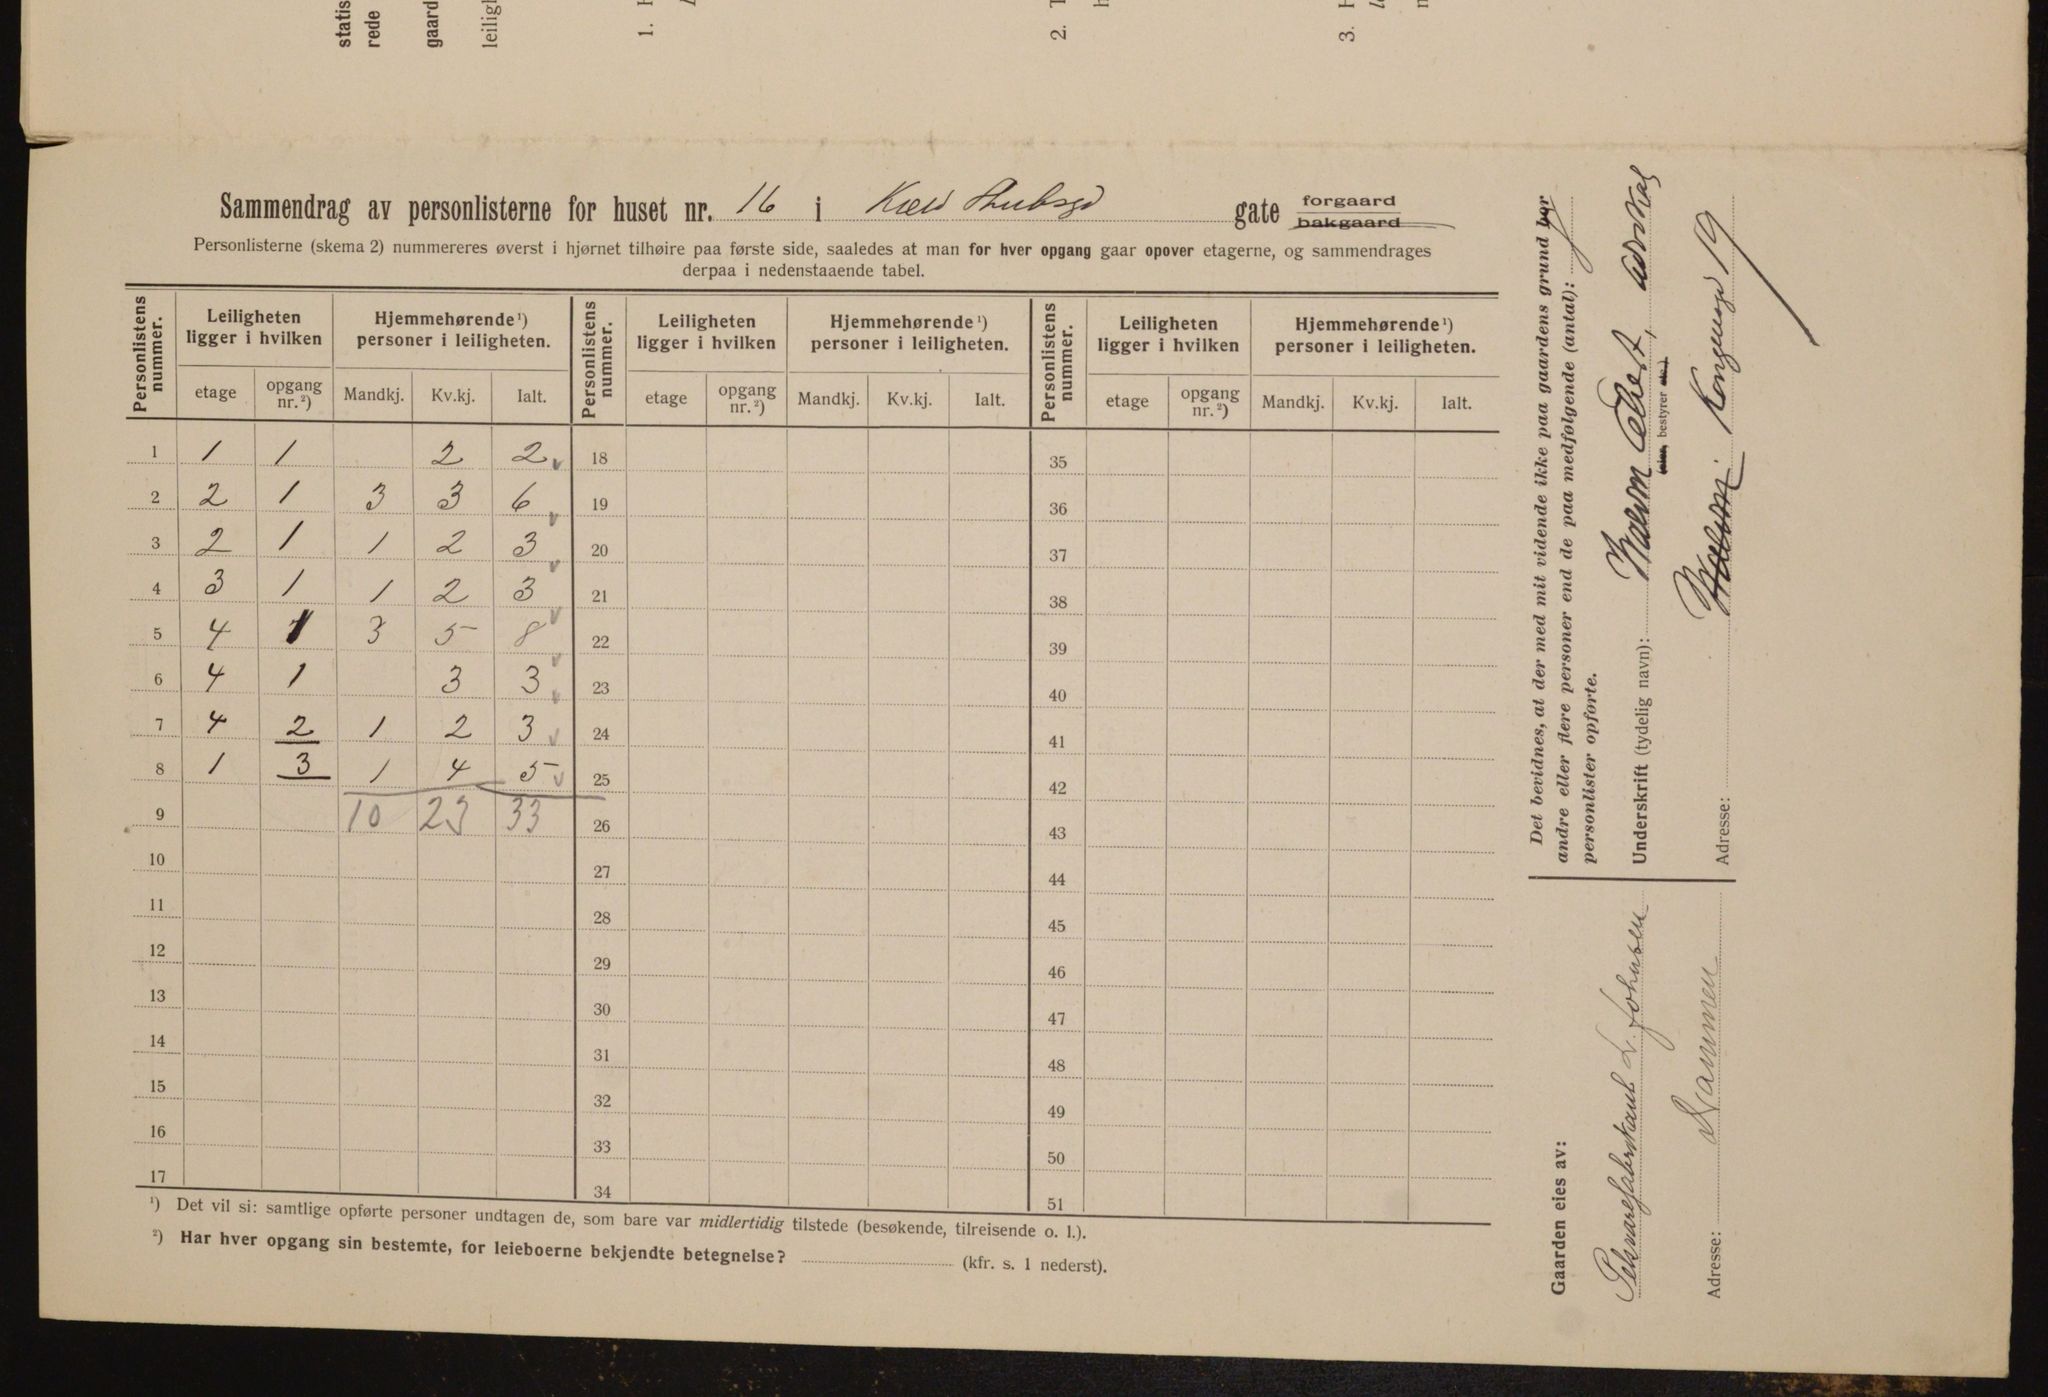 statis
rede
gaard
leiligh
1.
2. T
3.
Sammendrag av personlisterne for huset nr. 16 i Keld Stubsgd gate forgaard
bakgaard
Personlisterne (skema 2) nummereres øverst i hjørnet tilhøire paa første side, saaledes at man for hver opgang gaar opover etagerne, og sammendrages
derpaa i nedenstaaende tabel.
Personlistens nummer. Leiligheten ligger i hvilken Hjemmehørende ¹) personer i leiligheten. Personlistens nummer. Leiligheten ligger i hvilken Hjemmehørende ¹) personer i leiligheten. Personlistens nummer. Leiligheten ligger i hvilken Hjemmehørende ¹) personer i leiligheten.
etage opgang nr. ²) Mandkj. Kv.kj. Ialt. etage opgang nr. ²) Mandkj. Kv.kj. Ialt. etage opgang nr. ²) Mandkj. Kv.kj. Ialt.
1 1 1 2 2 18 35
2 2 1 3 3 6 19 36
3 2 1 1 2 3 20 37
4 3 1 1 2 3 21 38
5 4 1 3 5 8 22 39
6 4 1 3 3 23 40
7 4 2 1 2 3 24 41
8 1 3 1 4 5 25 42
9 10 23 33 26 43
10 27 44
11 28 45
12 29 46
13 30 47
14 31 48
15 32 49
16 33 50
17 34 51
¹) Det vil si: samtlige opførte personer undtagen de, som bare var midlertidig tilstede (besøkende, tilreisende o. l.).
²) Har hver opgang sin bestemte, for leieboerne bekjendte betegnelse? (kfr. s. 1 nederst).
Det bevidnes, at der med mit vidende ikke paa gaardens grund bor
andre eller flere personer end de paa medfølgende (antal):
personlister opførte.
Underskrift (tydelig navn):
(eier, bestyrer etc.)
Adresse: Kongensgd 19
Gaarden eies av: L. Johnsen
Adresse: Drammen